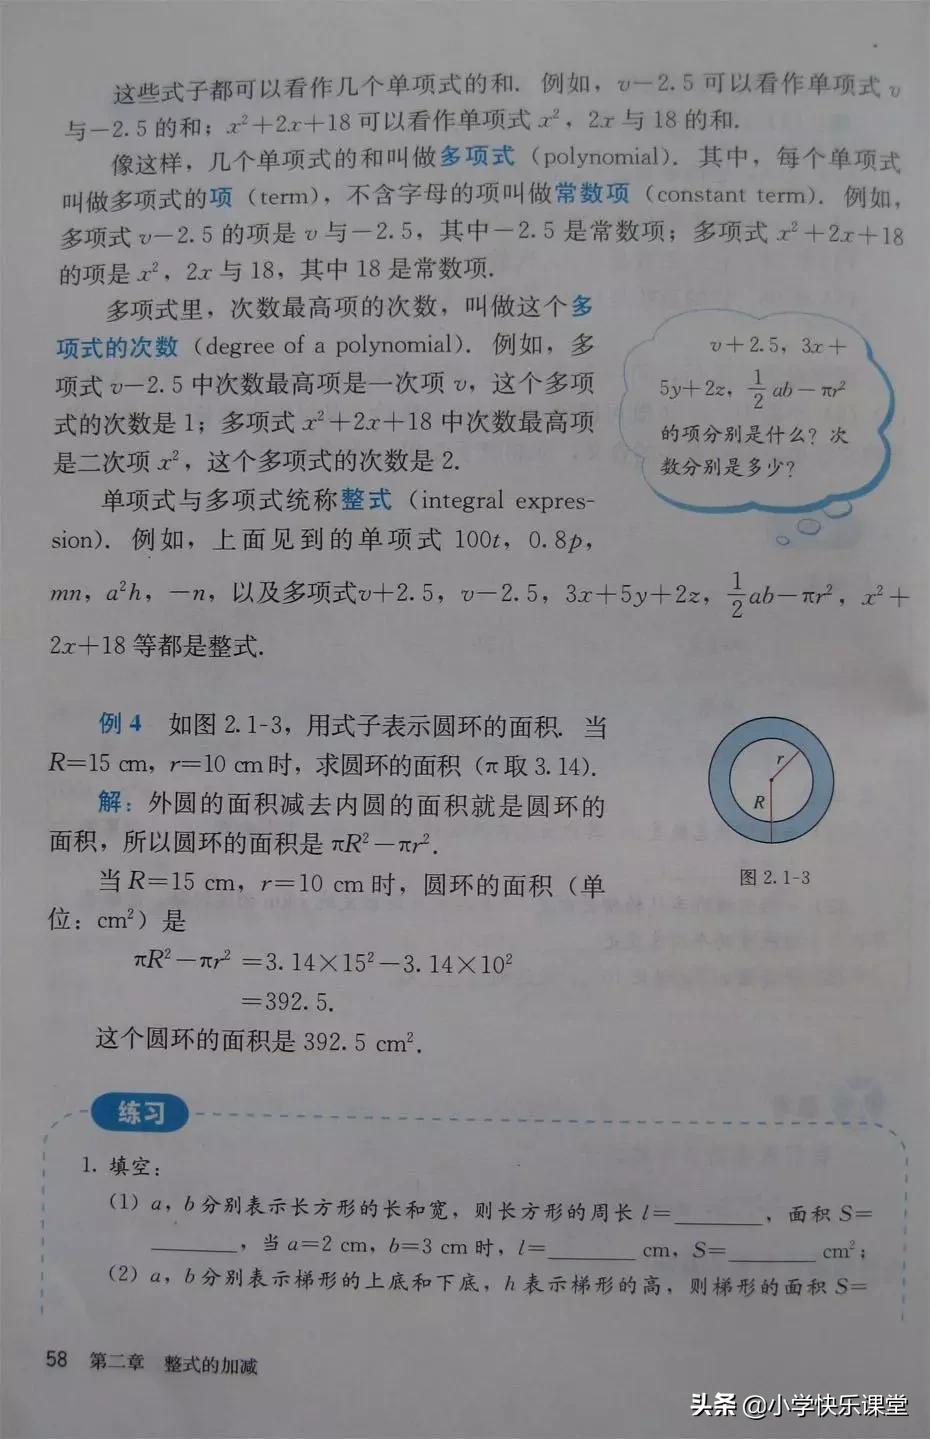 这些式子都可以看作几个单项式的和. 例如，v－2.5 可以看作单项式 v
与－2.5 的和；x²＋2x＋18 可以看作单项式 x²，2x 与 18 的和.
像这样，几个单项式的和叫做多项式（polynomial）. 其中，每个单项式
叫做多项式的项（term），不含字母的项叫做常数项（constant term）. 例如，
多项式 v－2.5 的项是 v 与－2.5，其中－2.5 是常数项；多项式 x²＋2x＋18
的项是 x²，2x 与 18，其中 18 是常数项.
多项式里，次数最高项的次数，叫做这个多
项式的次数（degree of a polynomial）. 例如，多
项式 v－2.5 中次数最高项是一次项 v，这个多项
式的次数是 1；多项式 x²＋2x＋18 中次数最高项
是二次项 x²，这个多项式的次数是 2.
v＋2.5，3x＋
5y＋2z，1/2 ab－πr²
的项分别是什么？次
数分别是多少？
单项式与多项式统称整式（integral expres-
sion）. 例如，上面见到的单项式 100t，0.8p，
mn，a²h，－n，以及多项式v＋2.5，v－2.5，3x＋5y＋2z，1/2 ab－πr²，x²＋
2x＋18 等都是整式.
例 4 如图 2.1-3，用式子表示圆环的面积. 当
R＝15 cm，r＝10 cm时，求圆环的面积（π 取 3.14）.
解：外圆的面积减去内圆的面积就是圆环的
面积，所以圆环的面积是 πR²－πr².
当 R＝15 cm，r＝10 cm 时，圆环的面积（单
位：cm²）是
πR²－πr² ＝3.14×15²－3.14×10²
＝392.5.
这个圆环的面积是 392.5 cm².
r
R
图 2.1-3
练习
1. 填空：
（1）a，b 分别表示长方形的长和宽，则长方形的周长 l＝________，面积 S＝
________，当 a＝2 cm，b＝3 cm 时，l＝________ cm，S＝________ cm²；
（2）a，b 分别表示梯形的上底和下底，h 表示梯形的高，则梯形的面积 S＝
58 第二章 整式的加减
头条 @小学快乐课堂